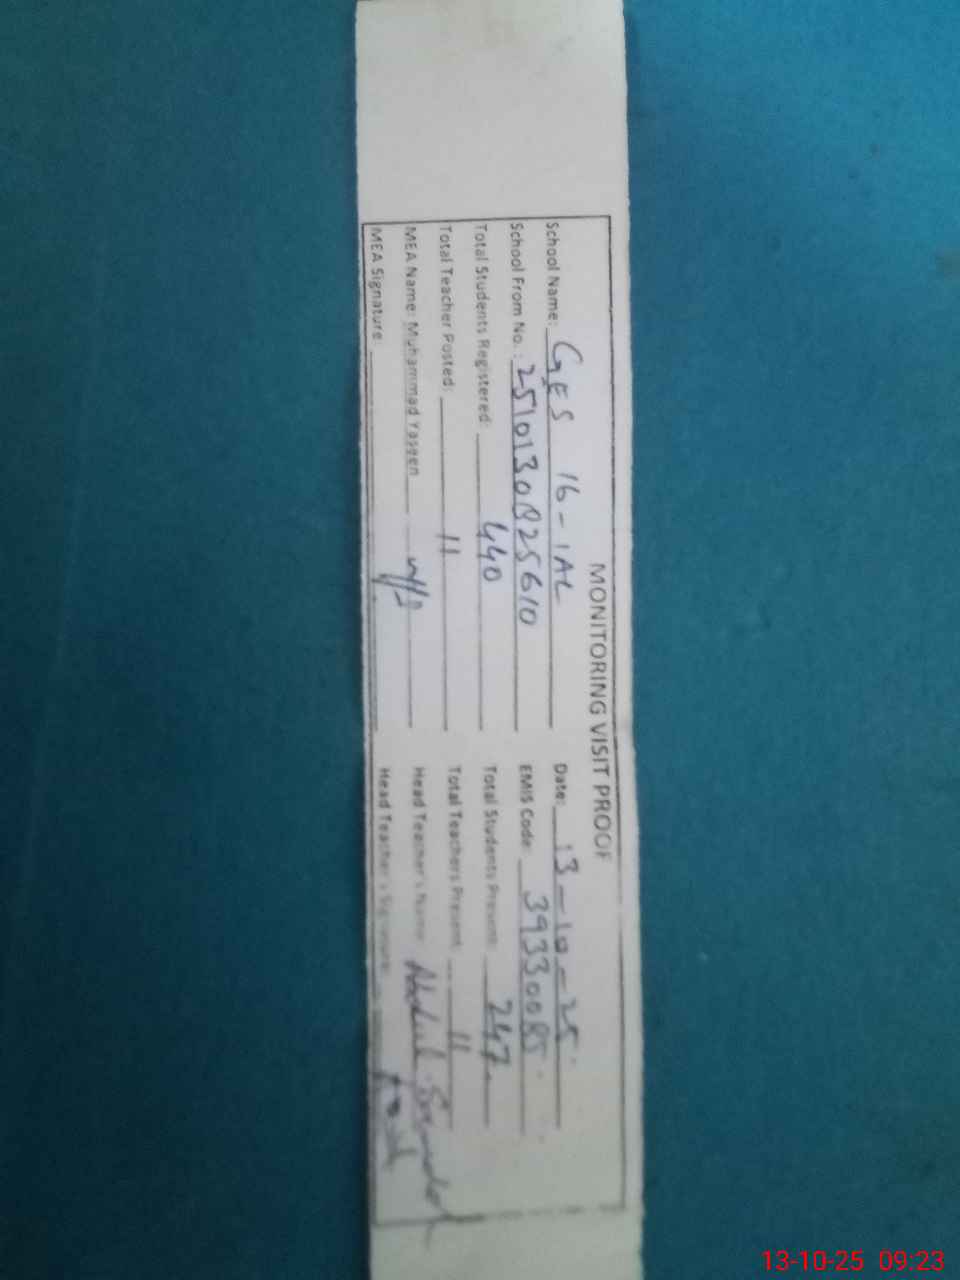 MONITORING VISIT PROOF
School Name: GES 16-1AL Date: 13-10-25
School From No.: 2510130825610 EMIS Code: 39330085
Total Students Registered: 440 Total Students Present: 247
Total Teacher Posted: 11 Total Teachers Present: 11
MEA Name: Muhammad Yaseen Head Teacher's Name: Abdul
MEA Signature: Head Teacher's Signature:
13-10-25 09:23